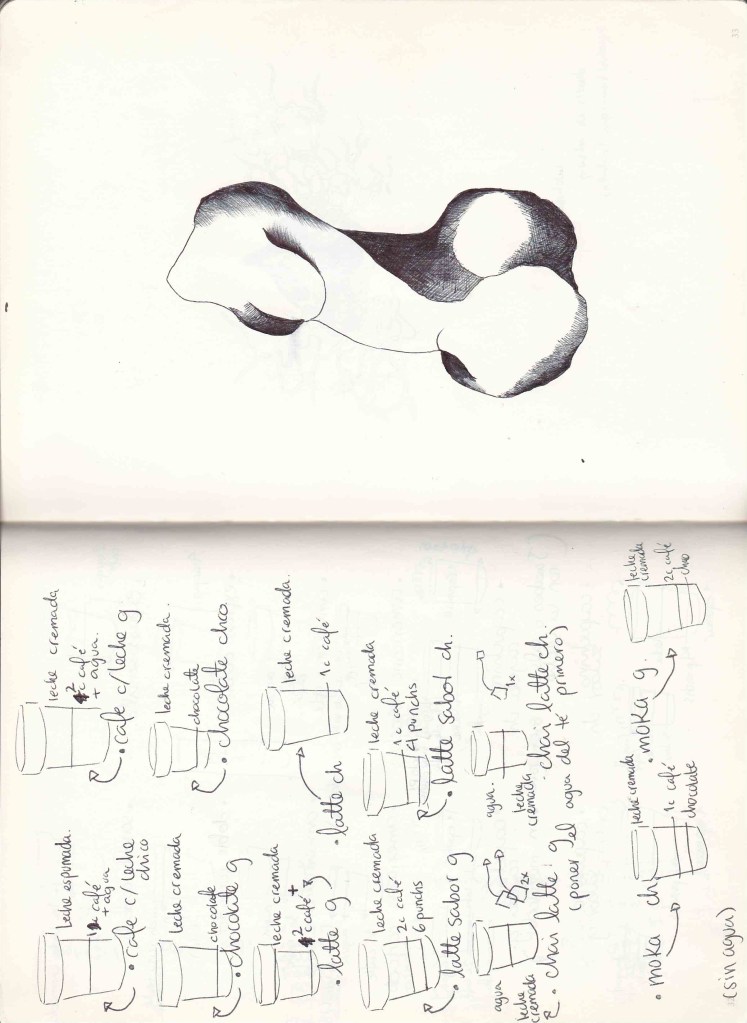 leche espumada.
1c café
+ agua
• cafe c/leche
chico
leche cremada
2c café
+ agua.
• cafe c/leche g
leche cremada
chocolate
• chocolate g
leche cremada.
chocolate
• chocolate chco
leche cremada
2c café +
• latte g
leche cremada.
1c café
• latte ch
leche cremada
2c café
6 punchs
• latte sabor g
leche cremada
1c café
4 punchs
• latte sabor ch.
agua
leche
cremada
2x
• chai latte g
agua.
leche
cremada
1x
chai latte ch.
(poner el agua del te primero)
leche cremada
1c café
chocolate
• moka ch
leche
cremada
2c café
choo
• moka g.
(sin agua)
33